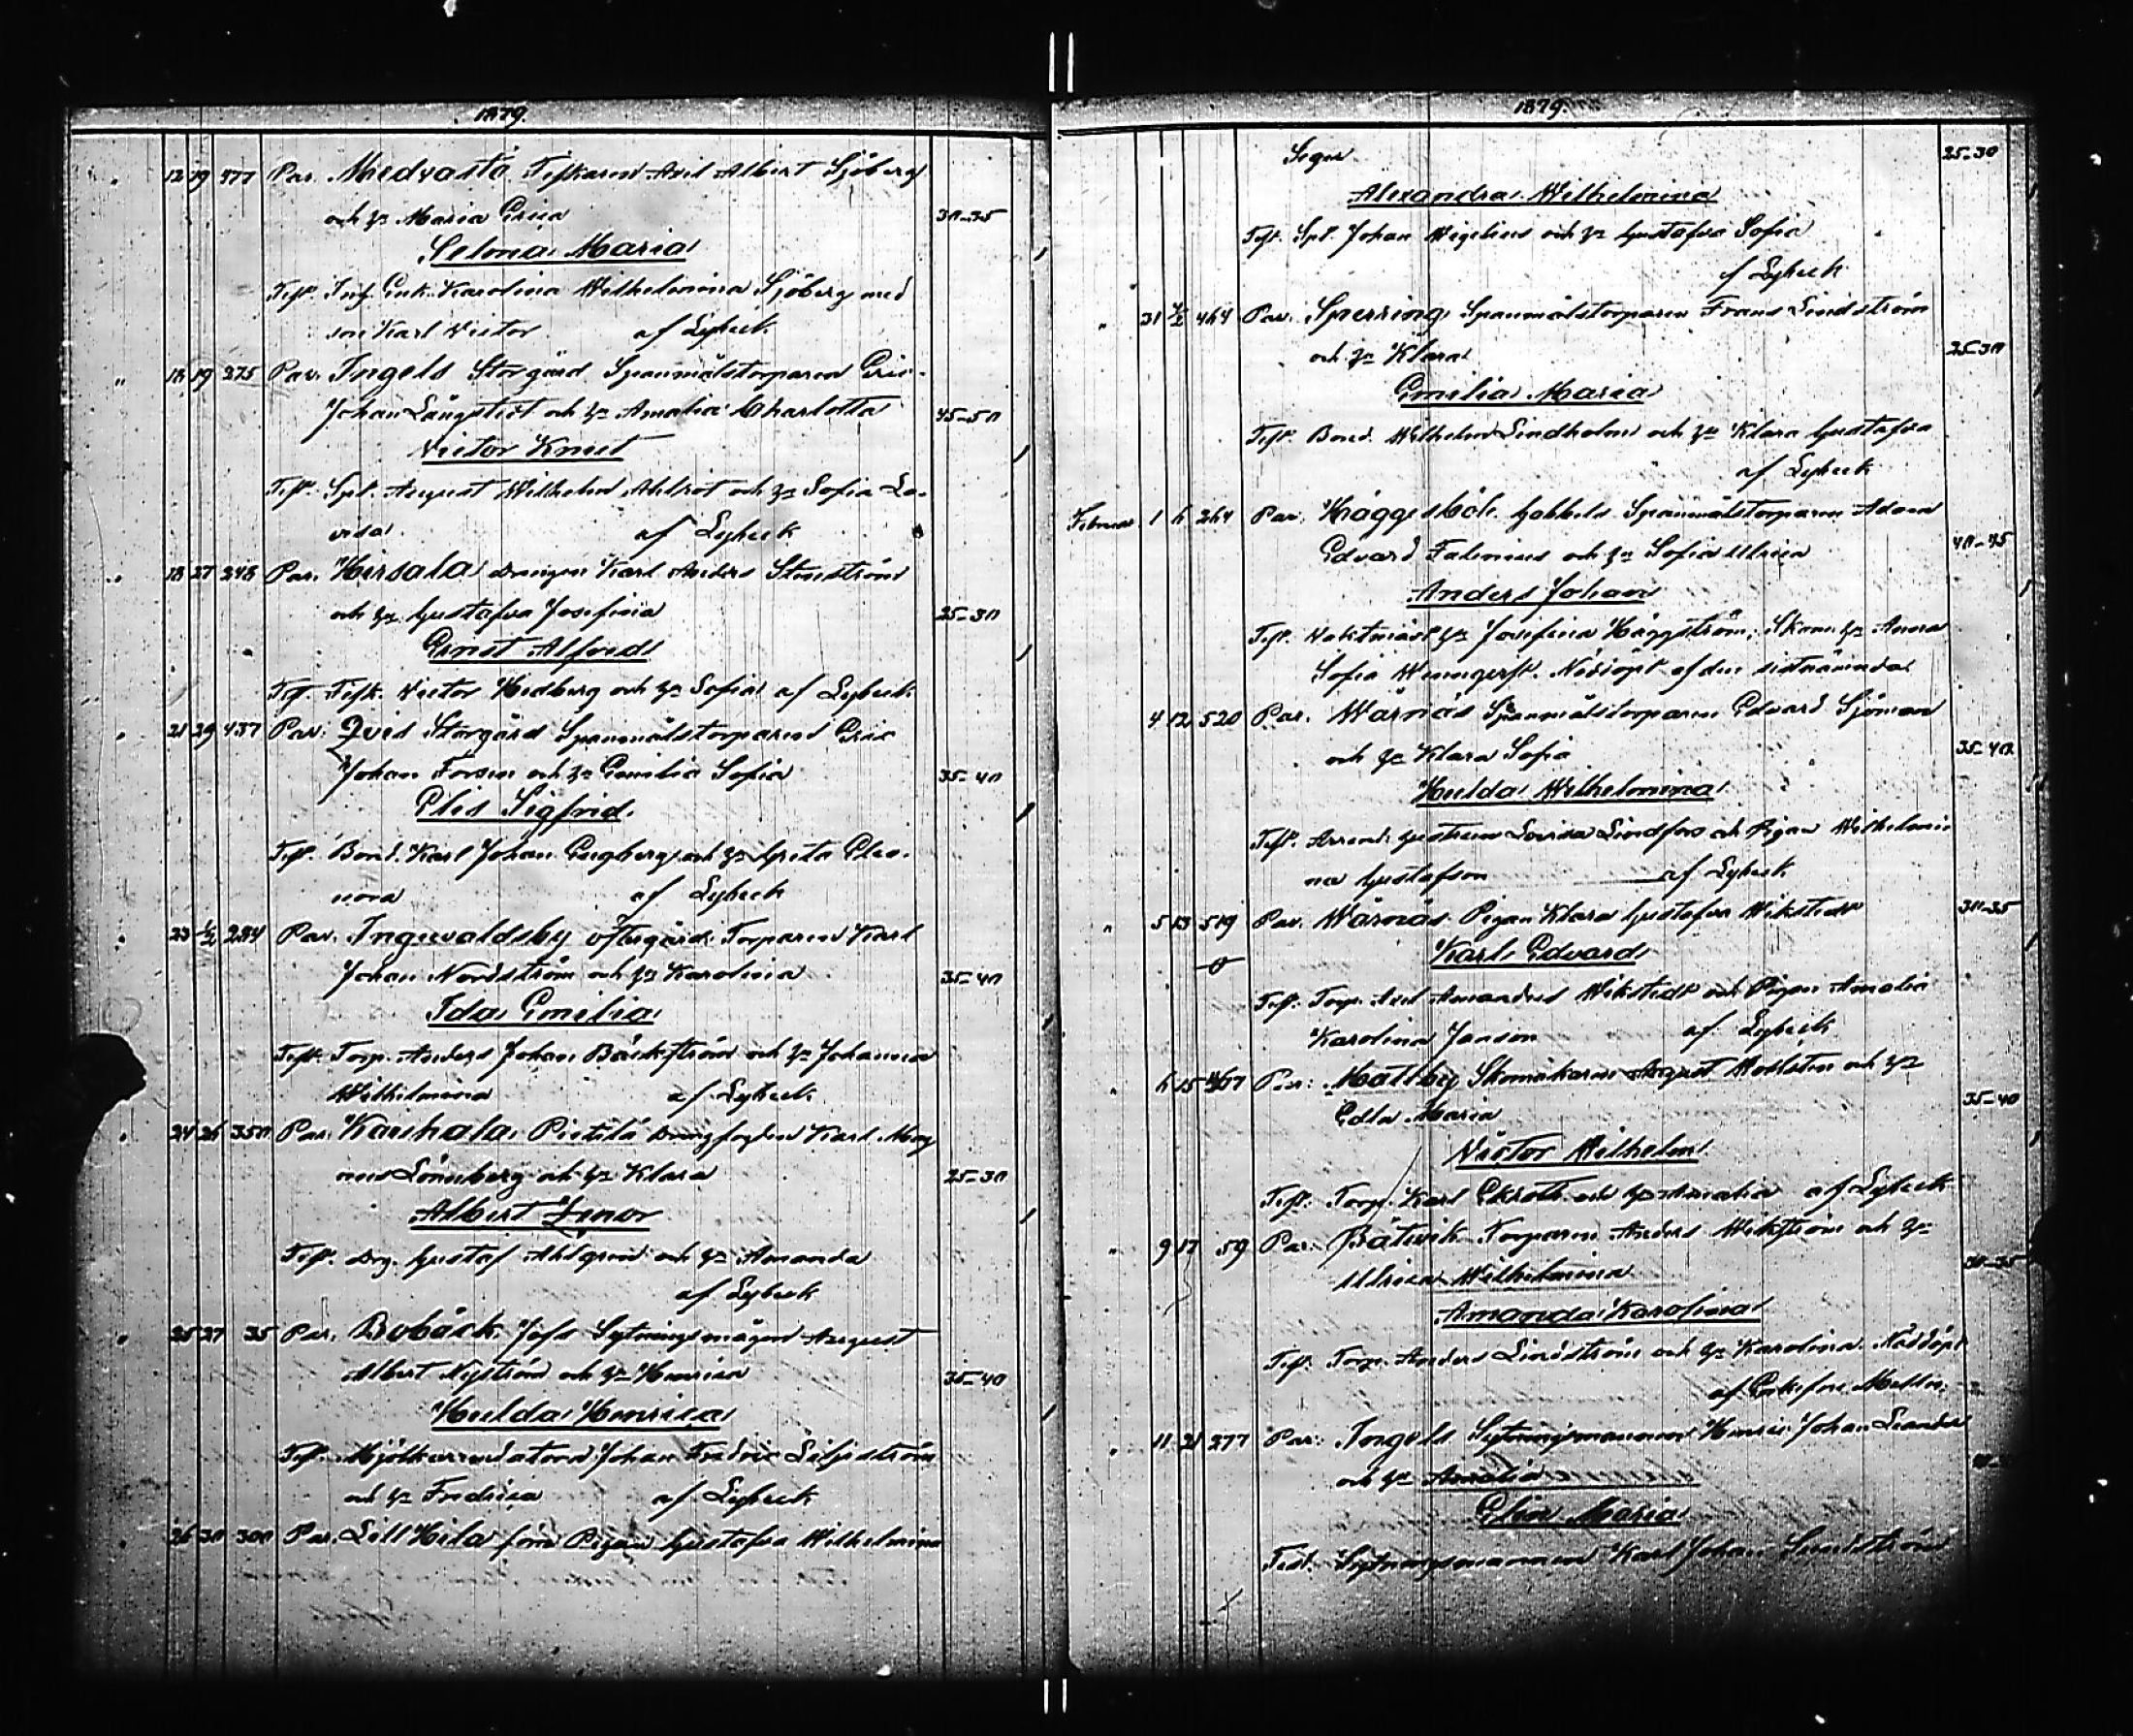 1879.
" 12 19 477 Par. Medvastö Fiskaren Axel Albert Sjöberg
och h:u Maria Erica 30-35
Selma Maria
Test. Enk. Karolina Wilhelmina Sjöberg med
son Karl Victor af Lybeck
" 18 19 275 Par. Ingels Storgård Spanmålstorparen Eric
Johan Långstedt och h:u Amalia Charlotta 45-50
Victor Knut
Test. Spt. August Wilhelm Ahlrot och h:u Sofia Lo-
visa af Lybeck
" 18 27 248 Par. Hirsala Drängen Karl Anders Stenström
och h:u Gustafva Josefina 25-30
Ernst Alfred
Test. Fisk. Victor Hedberg och h:u Sofia af Lybeck
" 21 29 437 Par. Qvis Storgård Spanmålstorparen Eric
Johan Forsen och h:u Emilia Sofia 35-40
Elis Sigfrid
Test. Bond. Karl Johan Engberg och h:u Greta Eleo-
nora af Lybeck
" 23 ½ 284 Par. Ingevaldsby Öfvergård Torparen Karl
Johan Nordström och h:u Karolina 35-40
Ida Emilia
Test. Torp. Anders Johan Bäckström och h:u Johanna
Wilhelmina af Lybeck
" 24 26 350 Par. Karihala Pietilä Drängfogden Karl Mag-
nus Lönnberg och h:u Klara 25-30
Albert Zenor
Test. Drg. Gustaf Ahlgren och h:u Amanda
af Lybeck
" 25 27 35 Par. Bobäck Jofs Sytningsmågen August
Albert Nyström och h:u Henrica 35-40
Hulda Henrica
Test. Mjölkarrendatorn Johan Fredric Liljeström
och h:u Fredrica af Lybeck
26 30 300 Par. Lill Hila förra Pigan Gustafva Wilhelmina
1879.
Seger 25-30
Alexandra Wilhelmina
Test. Spt. Johan Wigelius och h:u Gustafva Sofia
af Lybeck
" 31 ½ 464 Par. Sperring Spanmålstorparen Frans Lindström
och h:u Klara 25-30
Emilia Maria
Test. Bond. Wilhelm Lindholm och h:u Klara Gustafva
af Lybeck
Februar. 1 6 264 Par. Häggesböle Gabbels Spanmålstorparen Adam
Edvard Falenius och h:u Sofia Ulrica 40-45
Anders Johan
Test. Vaktmäst. h:u Josefina Häggström, Skom. h:u Anna
Sofia Nödöpt af den sistnämnda
4 12 520 Par. Wärnäs Spanmålstorparen Edvard Sjöman
och h:u Klara Sofia 35-40
Hulda Wilhelmina
Test. Arrend. hustrun Lovisa Lindfors och Pigan Wilhelmi-
na Gustafson af Lybeck
" 5 13 519 Par. Wärnäs Pigan Klara Gustafva Wikstedt 30-35
Karl Edvard
Test. Torp. Axel Amandus Wikstedt och Pigan Amalia
Karolina Janson af Lybeck
" 6 15 Par. Mättby Skomakaren August Mohlsten och h:u
Edla Maria 35-40
Victor Wilhelm
Test. Torp. Karl Ekroth och h:u Amalia af Lybeck
" 9 17 59 Par. Båtvik Torparen Anders Wikström och h:u
Ulrica Wilhelmina 30-35
Amanda Karolina
Test. Torp. Anders Lindström och h:u Karolina. Nöddöpt
af
" 11 21 277 Par. Ingels Sytningsmannen Henric Johan Leander
och h:u Amalia
Elin Maria
Test. Sytningsmannen Karl Johan Sundström